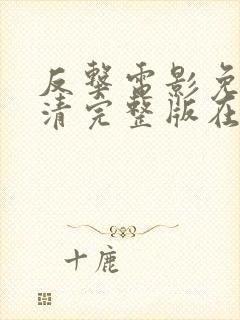 反擊電影免
清完整版在
十鹿